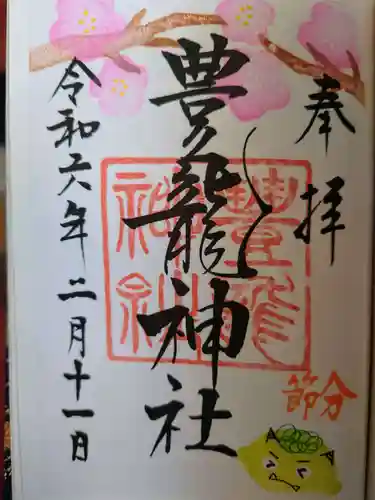 奉拝
豊龍神社
豊龍神社
節分
令和六年二月十一日